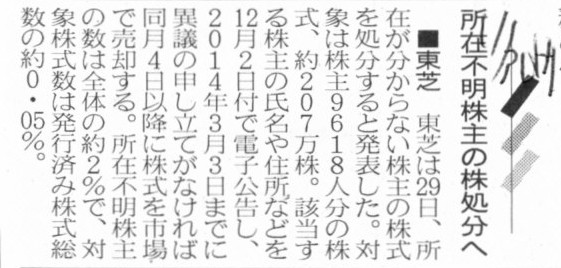 所在不明株主の株処分へ
■東芝　東芝は29日、所
在が分からない株主の株式
を処分すると発表した。対
象は株主9618人分の株
式、約207万株。該当す
る株主の氏名や住所などを
12月2日付で電子公告し、
2014年3月3日までに
異議の申し立てがなければ
同月4日以降に株式を市場
で売却する。所在不明株主
の数は全体の約2%で、対
象株式数は発行済み株式総
数の約0・05%。